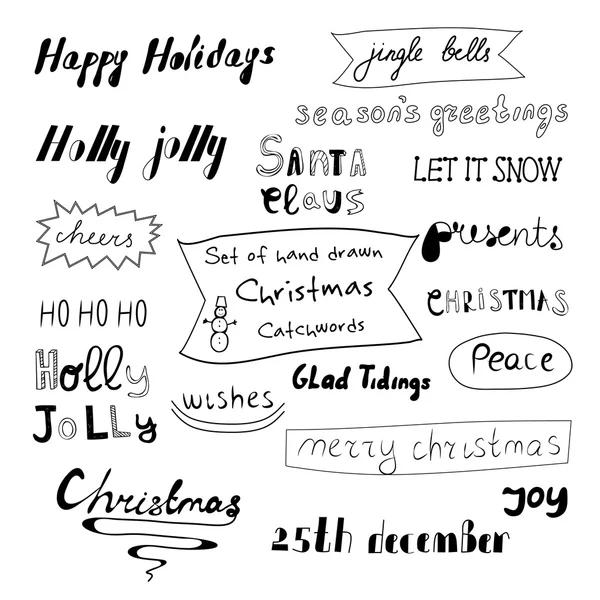 Happy Holidays
jingle bells
season's greetings
Holly jolly
SANTA
Claus
LET IT SNOW
cheers
presents
Set of hand drawn
Christmas
Catchwords
HO HO HO
CHRiSTMAS
Holly
JOLLy
wishes
GLad Tidings
Peace
merry christmas
Christmas
JOY
25th december